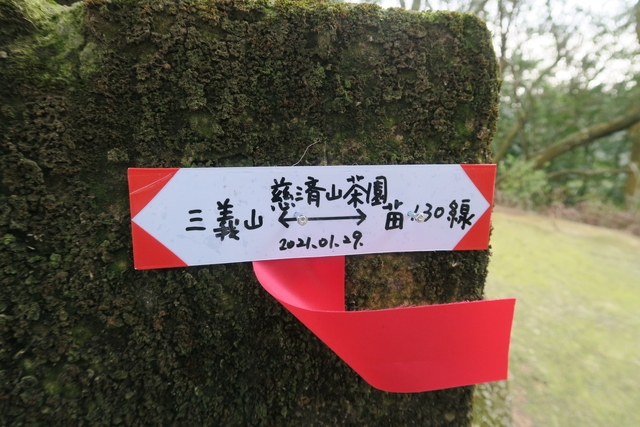 慈済山茶園
三義山 ⟷ 苗130線
2021.01.29.